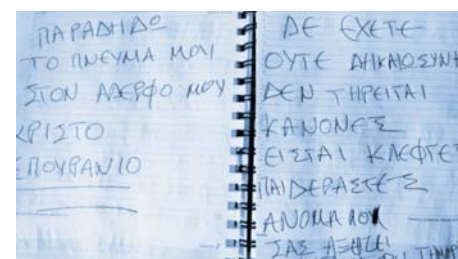 ΠΑΡΑΔΗΔΩ
ΤΟ ΠΝΕΥΜΑ ΜΟΥ
ΣΤΟΝ ΑΔΕΡΦΟ ΜΟΥ
ΧΡΙΣΤΟ
ΕΠΟΥΡΑΝΙΟ
ΔΕ ΕΧΕΤΕ
ΟΥΤΕ ΔΗΚΑΙΟΣΥΝΗ
ΔΕΝ ΤΗΡΕΙΤΑΙ
ΚΑΝΟΝΕΣ
ΕΙΣΤΑΙ ΚΛΕΦΤΕΣ
ΠΑΙΔΕΡΑΣΤΕΣ
ΣΑΣ ΑΞΗΖΕΙ